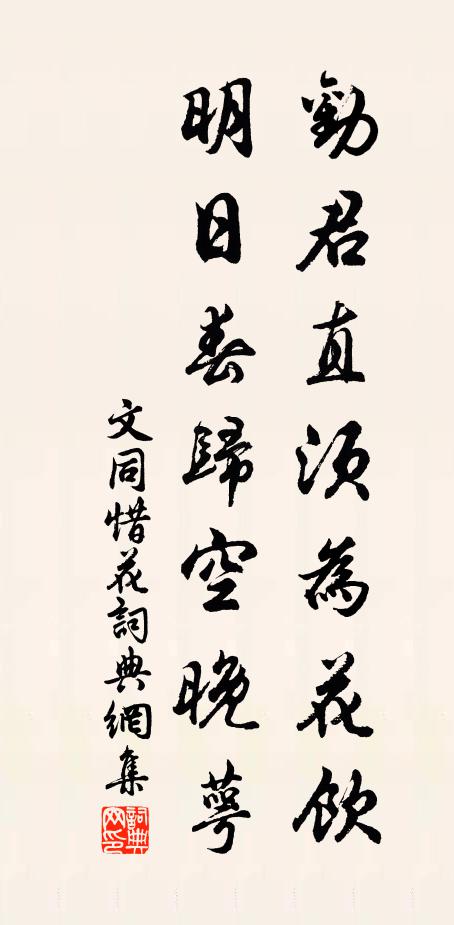 勸君直須為花飲
明日春歸空晚萼
文同惜花詞典網集
詞典網印